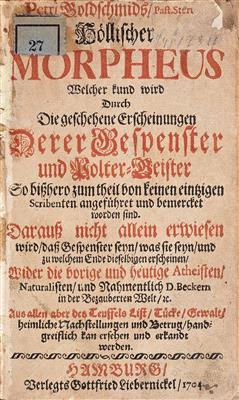 Petri Goldschmids/ Past. Sten.
27
Höllischer
MORPHEUS
Welcher kund wird
Durch
Die geschehene Erscheinungen
Derer Gespenster
und Polter-Geister
So bißhero zum theil von keinen eintzigen
Scribenten angeführet und bemercket
worden sind.
Darauß nicht allein erwiesen
wird/ daß Gespenster seyn/ was sie seyn/ und
zu welchem Ende dieselbigen erscheinen/
Wider die vorige und heutige Atheisten/
Naturalisten/ und Nahmentlich D. Beckern
in der Bezauberten Welt/ ꝛc.
Aus allen aber des Teuffels List/ Tücke/ Gewalt/
heimliche Nachstellungen und Betrug/ hand-
greiflich kan ersehen und erkandt
werden.
HAMBURG/
Verlegts Gottfried Liebernickel/ 1704